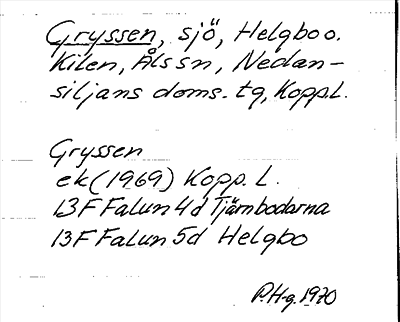 Gryssen, sjö, Helgbo o.
Kilen, Åls sn, Nedan-
siljans doms. tg, Kopp.L.
Gryssen
ek (1969) Kopp. L.
13F Falun 4d Tjärnbodarna
13F Falun 5d Helgbo
P.H-g. 1970